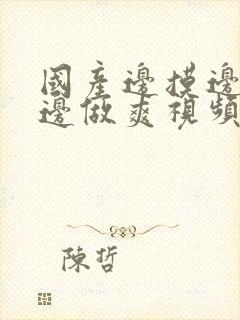 國產邊摸邊
邊做爽視頻
陳哲